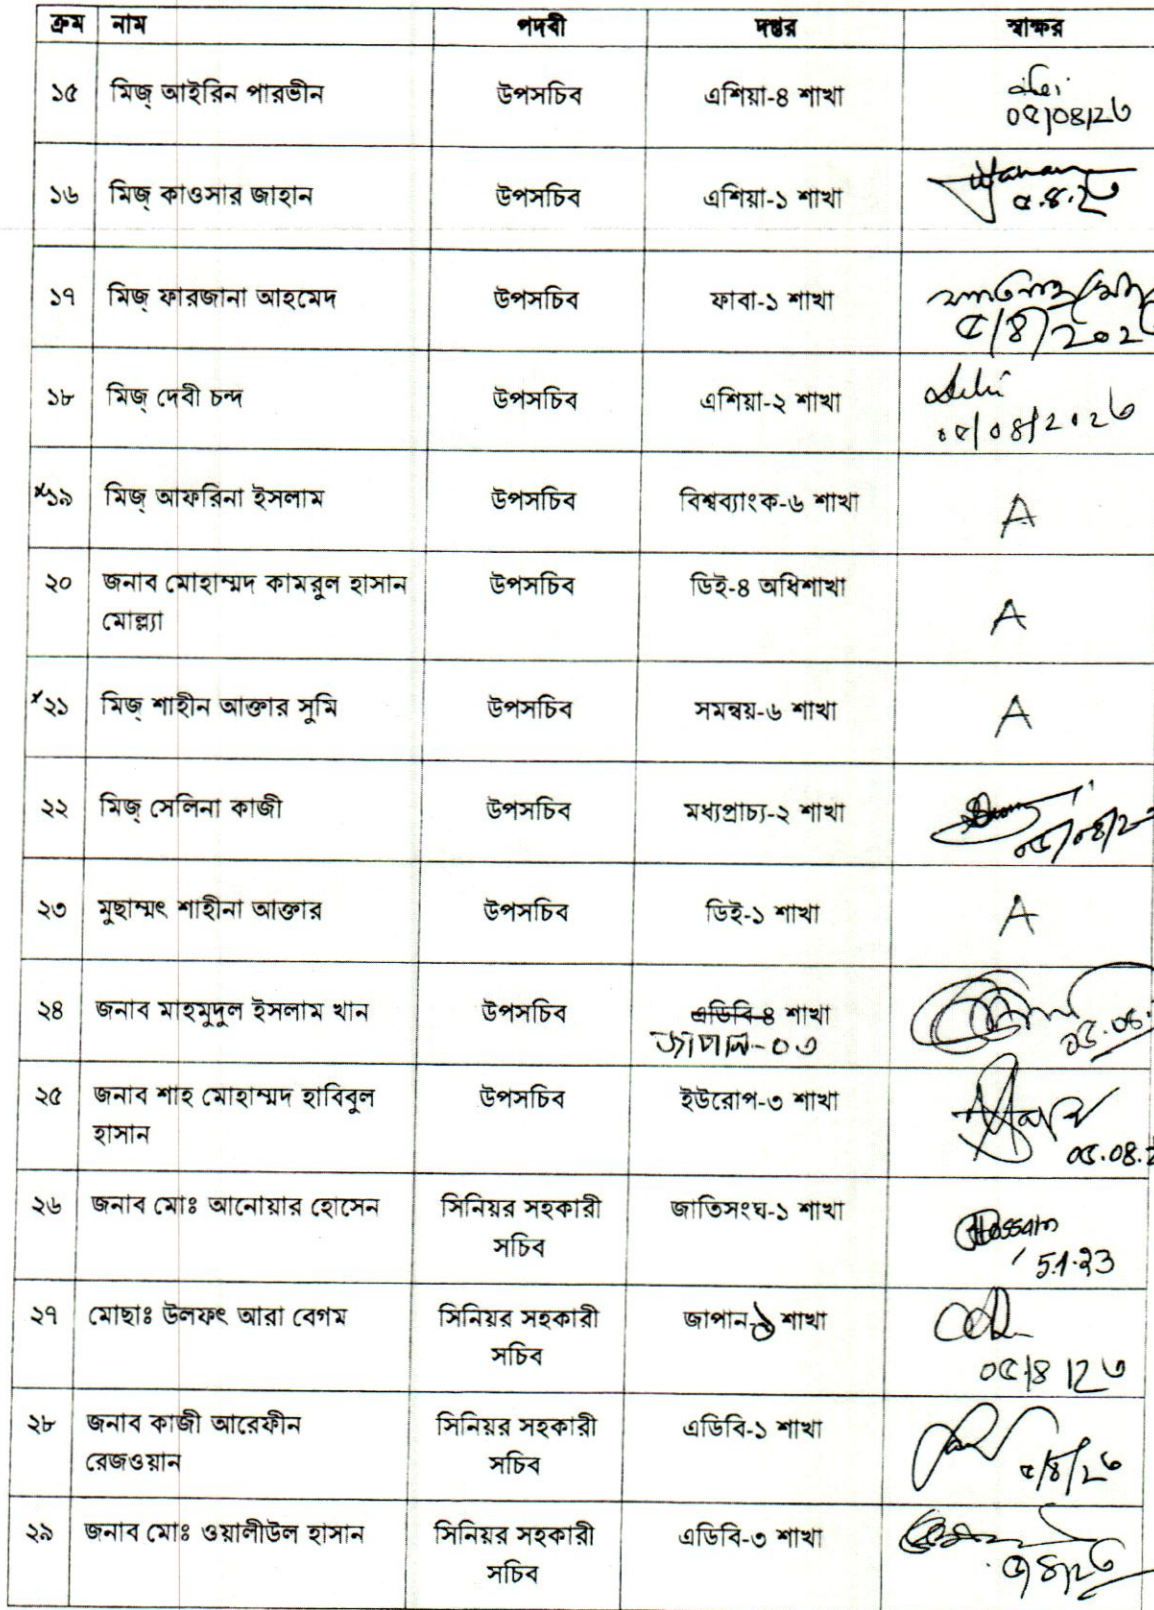 ক্রম নাম পদবী দপ্তর স্বাক্ষর
১৫ মিজ্ আইরিন পারভীন উপসচিব এশিয়া-৪ শাখা
০৫/০৪/২৩
১৬ মিজ্ কাওসার জাহান উপসচিব এশিয়া-১ শাখা
৫.৪.২৩
১৭ মিজ্ ফারজানা আহমেদ উপসচিব ফাবা-১ শাখা
৫/৪/২০২
১৮ মিজ্ দেবী চন্দ উপসচিব এশিয়া-২ শাখা
০৫/০৪/২০২৩
x১৯ মিজ্ আফরিনা ইসলাম উপসচিব বিশ্বব্যাংক-৬ শাখা A
২০ জনাব মোহাম্মদ কামরুল হাসান উপসচিব ডিই-৪ অধিশাখা
মোল্ল্যা A
x২১ মিজ্ শাহীন আক্তার সুমি উপসচিব সমন্বয়-৬ শাখা A
২২ মিজ্ সেলিনা কাজী উপসচিব মধ্যপ্রাচ্য-২ শাখা
০৫/০৪/২
২৩ মুছাম্মৎ শাহীনা আক্তার উপসচিব ডিই-১ শাখা A
২৪ জনাব মাহমুদুল ইসলাম খান উপসচিব এডিবি-৪ শাখা
জাপান-০৩
২৫ জনাব শাহ মোহাম্মদ হাবিবুল উপসচিব ইউরোপ-৩ শাখা
হাসান ০৫.০৪.২
২৬ জনাব মোঃ আনোয়ার হোসেন সিনিয়র সহকারী জাতিসংঘ-১ শাখা Hossain
সচিব 5.4.23
২৭ মোছাঃ উলফৎ আরা বেগম সিনিয়র সহকারী জাপান-১ শাখা
সচিব ০৫/৪/২৩
২৮ জনাব কাজী আরেফীন সিনিয়র সহকারী এডিবি-১ শাখা
রেজওয়ান সচিব ৫/৪/২৩
২৯ জনাব মোঃ ওয়ালীউল হাসান সিনিয়র সহকারী এডিবি-৩ শাখা
সচিব ৫/৪/২৩